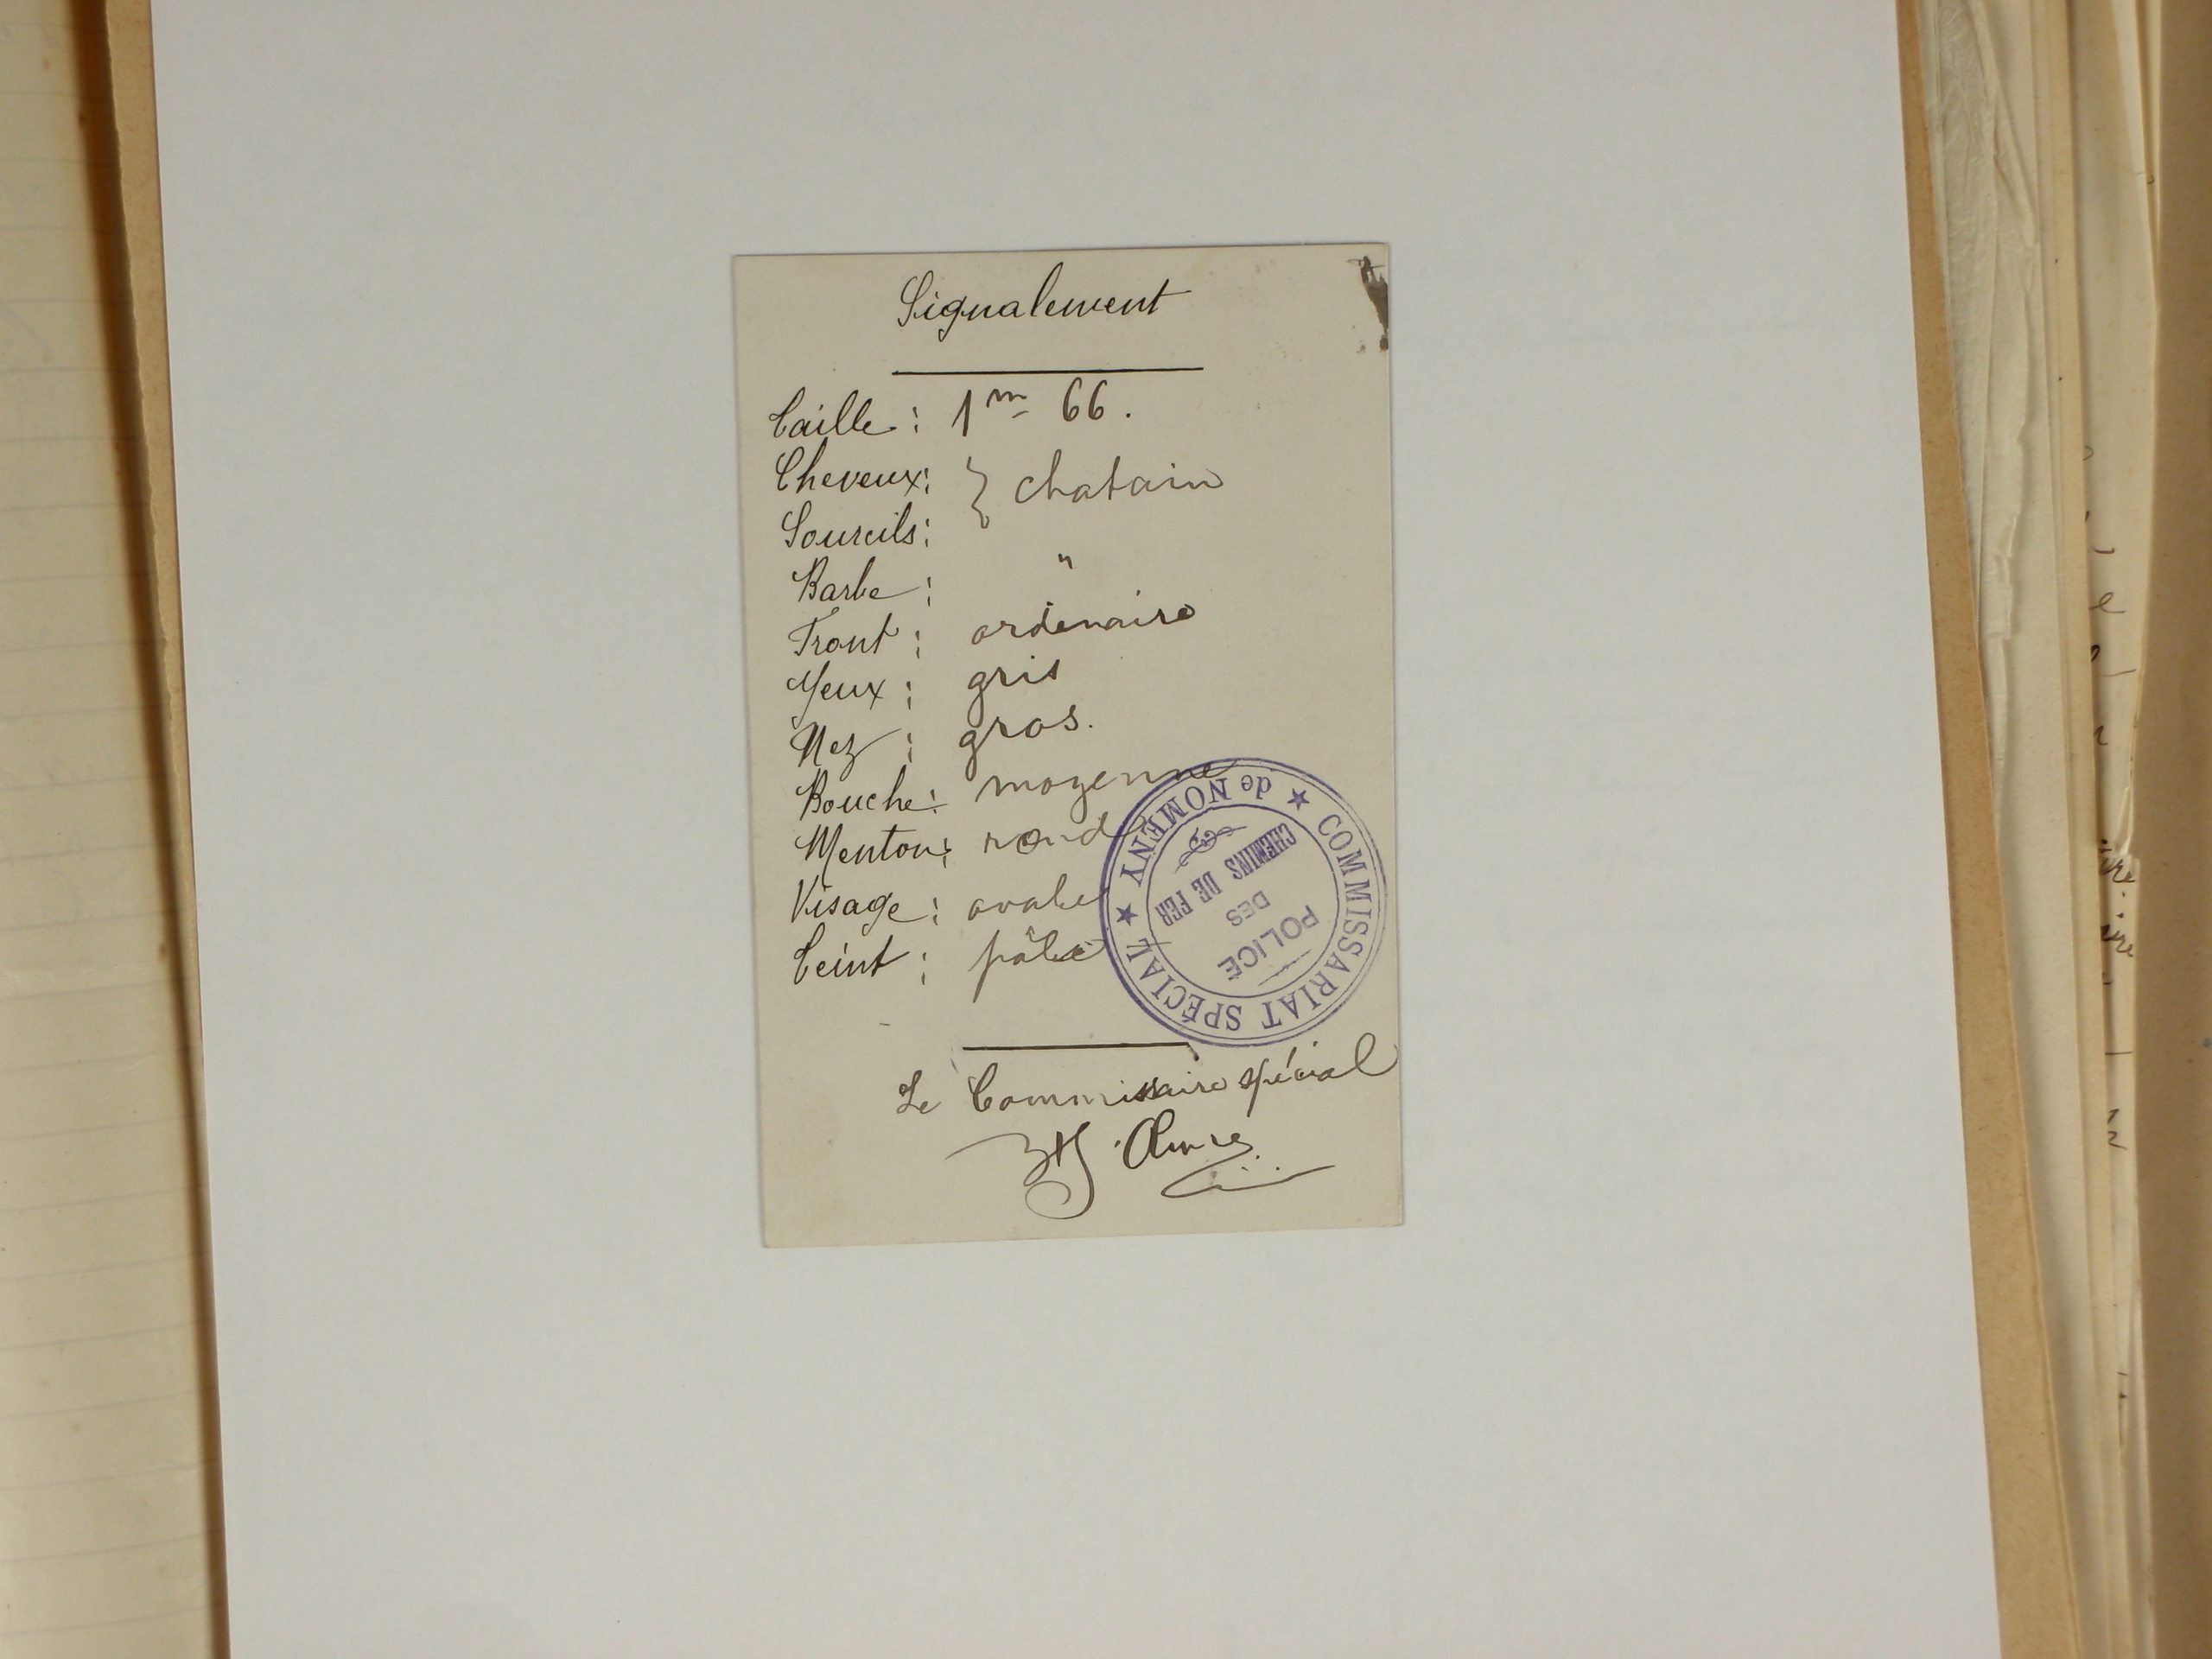 Signalement
Taille : 1m 66.
Cheveux : } chatain
Sourcils :
Barbe : "
Front : ordinaire
Yeux : gris
Nez : gros.
Bouche : moyenne
Menton : rond
Visage : ovale
Teint : pâle
COMMISSARIAT SPÉCIAL ★ de NOMENY ★
POLICE
DES
CHEMINS DE FER
Le Commissaire spécial